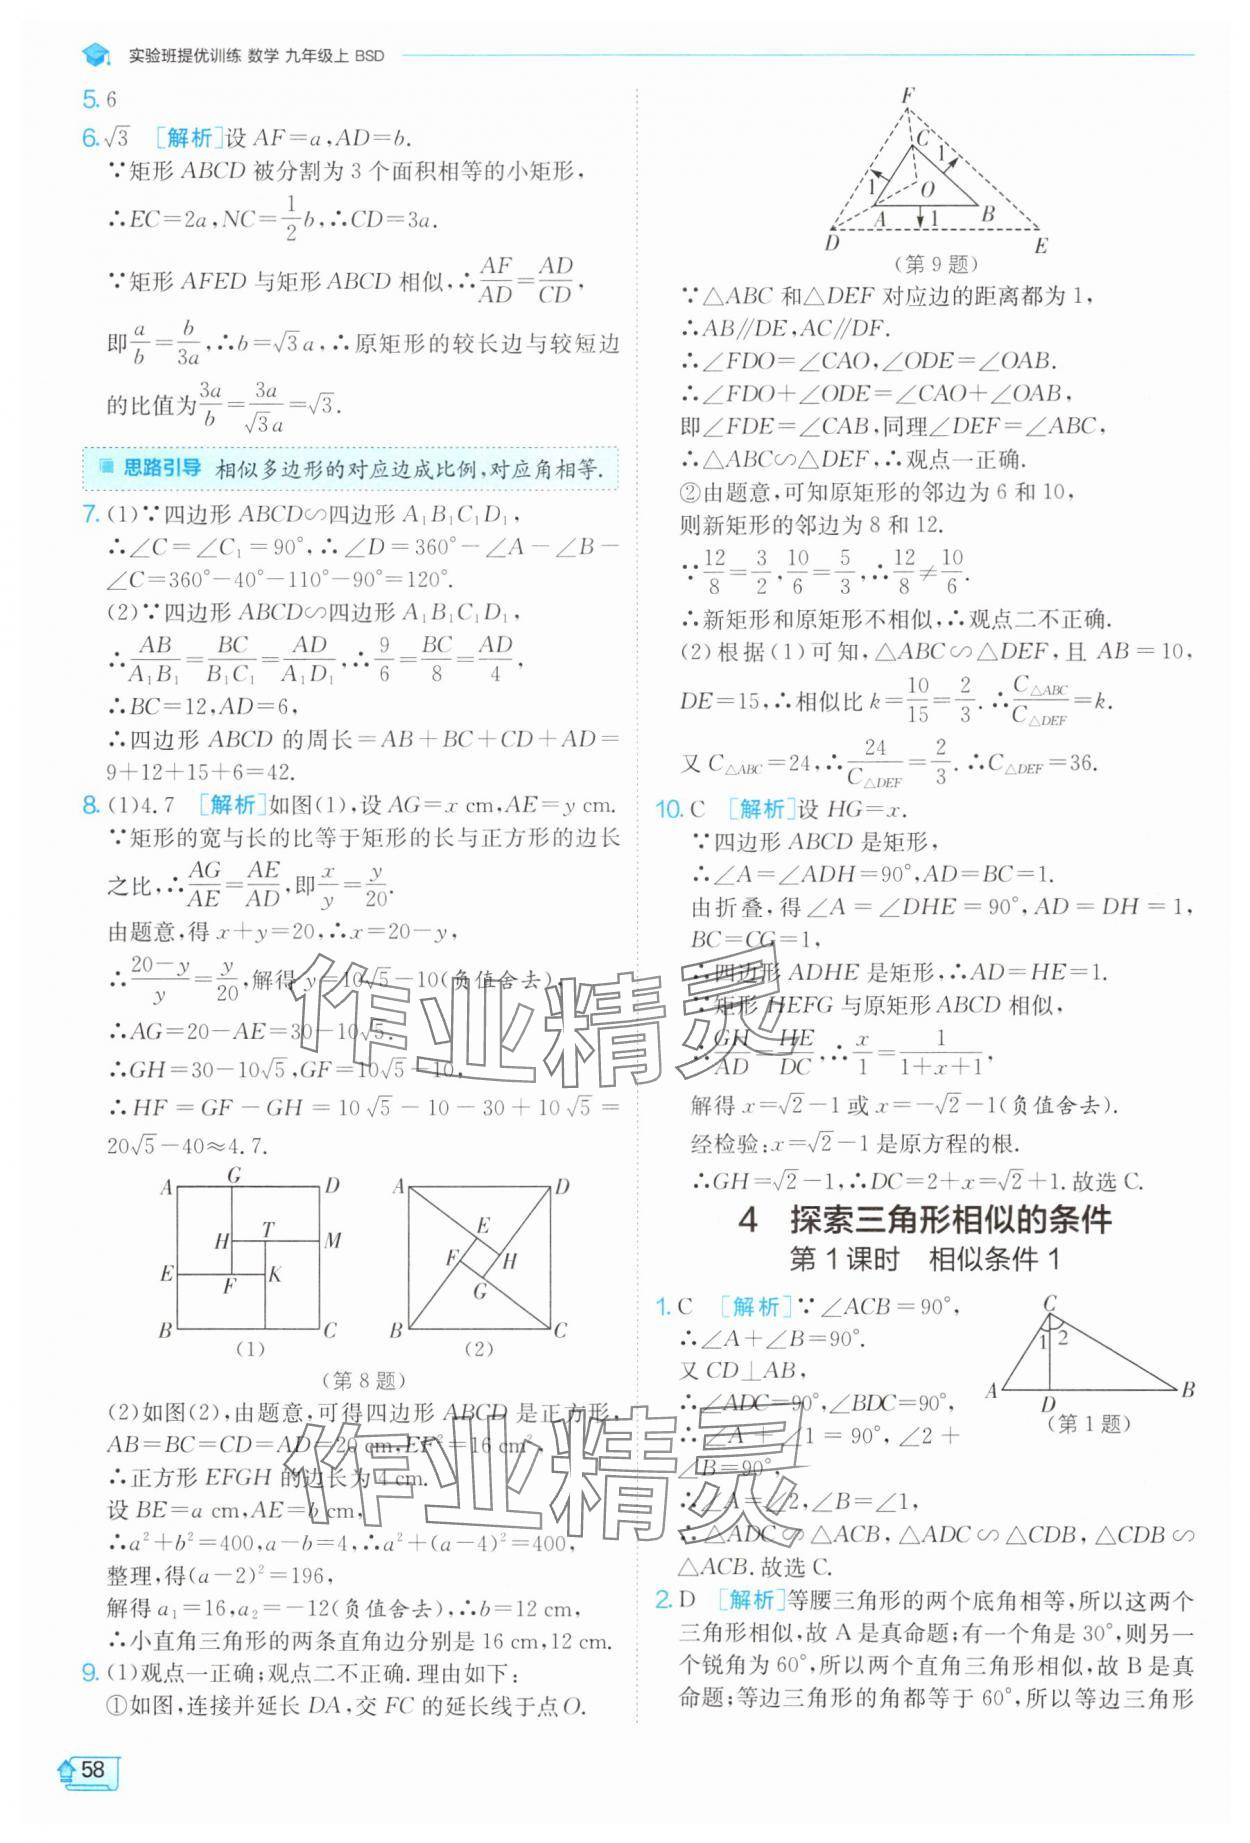 实验班提优训练 数学 九年级上 BSD
5. 6
6. √3 [解析]设 AF=a,AD=b.
∵矩形 ABCD 被分割为 3 个面积相等的小矩形,
∴EC=2a,NC=1/2 b,∴CD=3a.
∵矩形 AFED 与矩形 ABCD 相似,∴AF/AD=AD/CD,
即a/b=b/3a,∴b=√3a,∴原矩形的较长边与较短边
的比值为3a/b=3a/√3a=√3.
思路引导 相似多边形的对应边成比例,对应角相等.
7. (1)∵四边形 ABCD∽四边形 A₁B₁C₁D₁,
∴∠C=∠C₁=90°,∴∠D=360°-∠A-∠B-
∠C=360°-40°-110°-90°=120°.
(2)∵四边形 ABCD∽四边形 A₁B₁C₁D₁,
∴AB/A₁B₁=BC/B₁C₁=AD/A₁D₁,∴9/6=BC/8=AD/4,
∴BC=12,AD=6,
∴四边形 ABCD 的周长=AB+BC+CD+AD=
9+12+15+6=42.
8. (1)4.7 [解析]如图(1),设 AG=x cm,AE=y cm.
∵矩形的宽与长的比等于矩形的长与正方形的边长
之比,∴AG/AE=AE/AD,即x/y=y/20.
由题意,得 x+y=20,∴x=20-y,
∴(20-y)/y=y/20,解得 y=10√5-10(负值舍去),
∴AG=20-AE=30-10√5.
∴GH=30-10√5,GF=10√5-10,
∴HF=GF-GH=10√5-10-30+10√5=
20√5-40≈4.7.
A G D
H T M
E F K
B C
(1)
A D
E
F H
G
B C
(2)
(第 8 题)
(2)如图(2),由题意,可得四边形 ABCD 是正方形,
AB=BC=CD=AD=20 cm,EF²=16 cm²,
∴正方形 EFGH 的边长为 4 cm.
设 BE=a cm,AE=b cm,
∴a²+b²=400,a-b=4,∴a²+(a-4)²=400,
整理,得(a-2)²=196,
解得 a₁=16,a₂=-12(负值舍去),∴b=12 cm,
∴小直角三角形的两条直角边分别是 16 cm,12 cm.
9. (1)观点一正确;观点二不正确.理由如下:
①如图,连接并延长 DA,交 FC 的延长线于点 O.
F
C 1
1 O
A 1 B
D E
(第 9 题)
∵△ABC 和△DEF 对应边的距离都为 1,
∴AB∥DE,AC∥DF.
∴∠FDO=∠CAO,∠ODE=∠OAB.
∴∠FDO+∠ODE=∠CAO+∠OAB,
即∠FDE=∠CAB,同理∠DEF=∠ABC,
∴△ABC∽△DEF,∴观点一正确.
②由题意,可知原矩形的邻边为 6 和 10,
则新矩形的邻边为 8 和 12.
∵12/8=3/2,10/6=5/3,∴12/8≠10/6.
∴新矩形和原矩形不相似,∴观点二不正确.
(2)根据(1)可知,△ABC∽△DEF,且 AB=10,
DE=15,∴相似比 k=10/15=2/3.∴C△ABC/C△DEF=k.
又 C△ABC=24,∴24/C△DEF=2/3.∴C△DEF=36.
10. C [解析]设 HG=x.
∵四边形 ABCD 是矩形,
∴∠A=∠ADH=90°,AD=BC=1.
由折叠,得∠A=∠DHE=90°,AD=DH=1,
BC=CG=1,
∴四边形 ADHE 是矩形,∴AD=HE=1.
∵矩形 HEFG 与原矩形 ABCD 相似,
∴GH/AD=HE/DC,∴x/1=1/(1+x+1),
解得 x=√2-1 或 x=-√2-1(负值舍去).
经检验:x=√2-1 是原方程的根.
∴GH=√2-1,∴DC=2+x=√2+1.故选 C.
4 探索三角形相似的条件
第 1 课时 相似条件 1
1. C [解析]∵∠ACB=90°,
∴∠A+∠B=90°.
又 CD⊥AB,
∴∠ADC=90°,∠BDC=90°.
∴∠A+∠1=90°,∠2+
∠B=90°,
∴∠A=∠2,∠B=∠1,
∴△ADC∽△ACB,△ADC∽△CDB,△CDB∽
△ACB.故选 C.
C
1 2
A D B
(第 1 题)
2. D [解析]等腰三角形的两个底角相等,所以这两个
三角形相似,故 A 是真命题;有一个角是 30°,则另一
个锐角为 60°,所以两个直角三角形相似,故 B 是真
命题;等边三角形的角都等于 60°,所以等边三角形
作业精灵
作业精灵
58